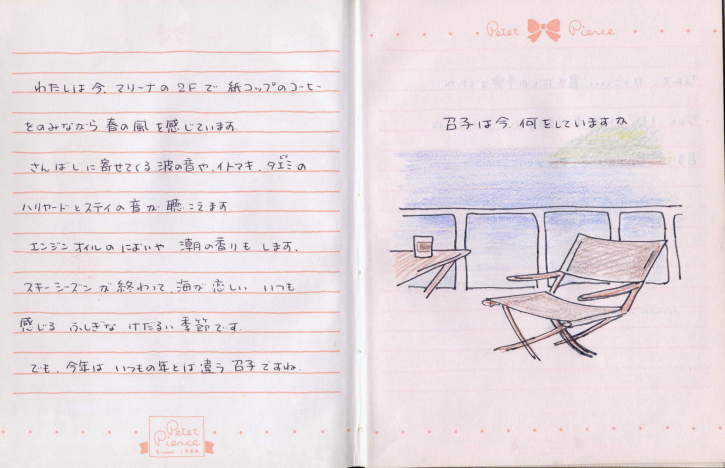 わたしは今、マリーナの2Fで 紙コップのコーヒー
をのみながら 春の風を感じています
さんばしに寄せてくる波の音や、イトマキ、タエミの
ハリヤードとステイの音が聴こえます
エンジンオイルのにおいや 潮の香りもします、
スキーシーズンが終わって、海が恋しい いつも
感じる ふしぎな けだるい季節です、
でも、今年は いつもの年とは違う召子ですね
Peter
Pierce
Since
Peter Pierce
召子は今、何をしていますか